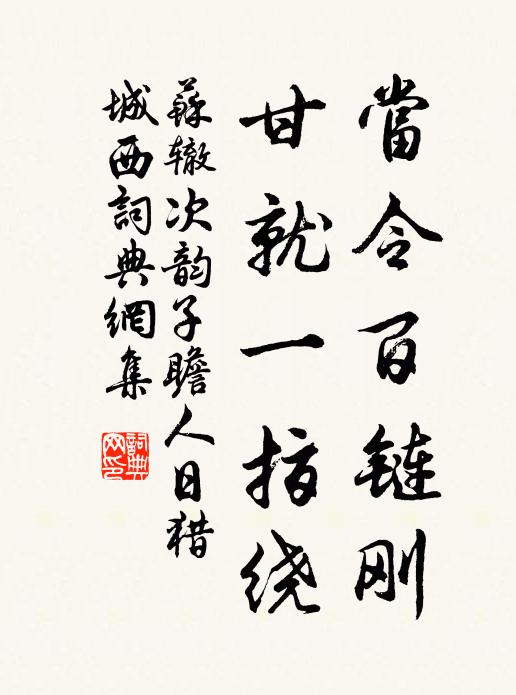 當令百鏈刚
甘就一指绕
蘇辙次韵子瞻人日猎
城西詞典網集
詞典网印